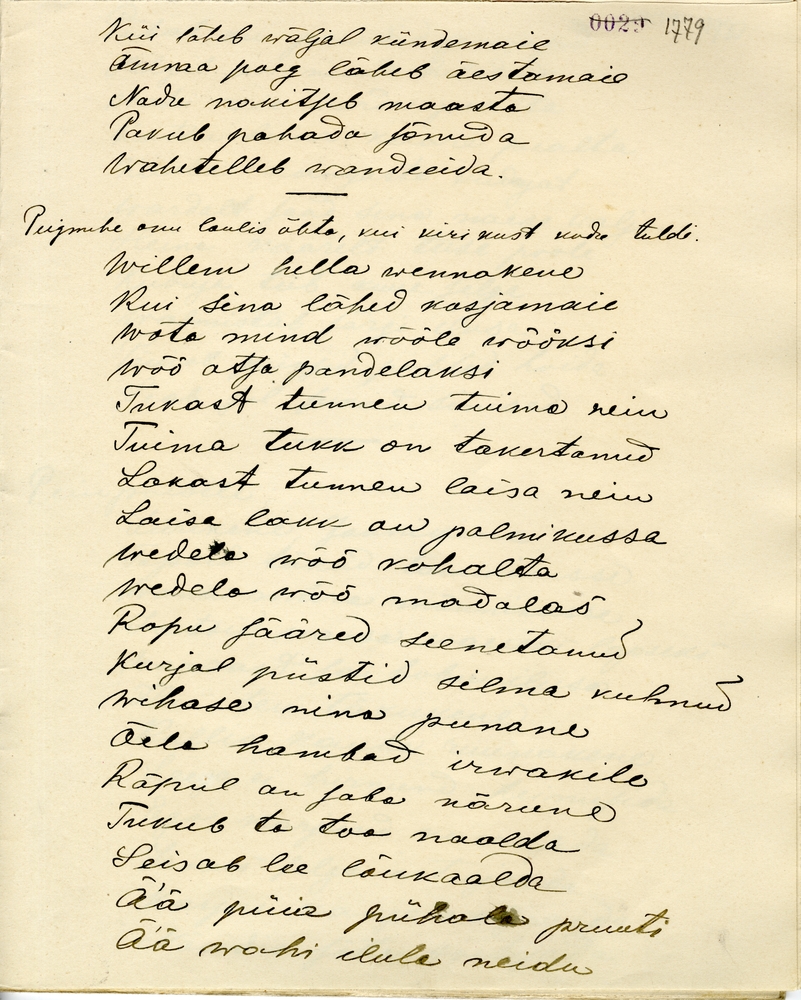 0029 1779
Kui läheb wäljal kündemaie
Ämmaa poeg läheb äestamaie
Nadu nokitseb maasta
Pakub pahada sõnuda
Wahetelleb wandeeida.
Peigmehe onu laulis õhta, kui kirikust kodu tuldi.
Willem hella wennakene
Kui sina lähed kosjamaie
Wota mind wööle wööksi
Wöö otsa pandelaksi
Tukast tunnen tuima nein
Tuima tukk on takertanud
Lakast tunnen laisa nein
Laisa lakk on palmikussa
Wedela wöö kohalta
Wedela wöö madalas
Ropu sääred seenetanud
Kurjal püstid silma kulmud
Wihase nina punane
Õela hambad irwakile
Räpul on saba närune
Tukub ta toa naalda
Seisab lee lõukaalda
Ää püia pühala pruuti
Ää wahi ilula neidu